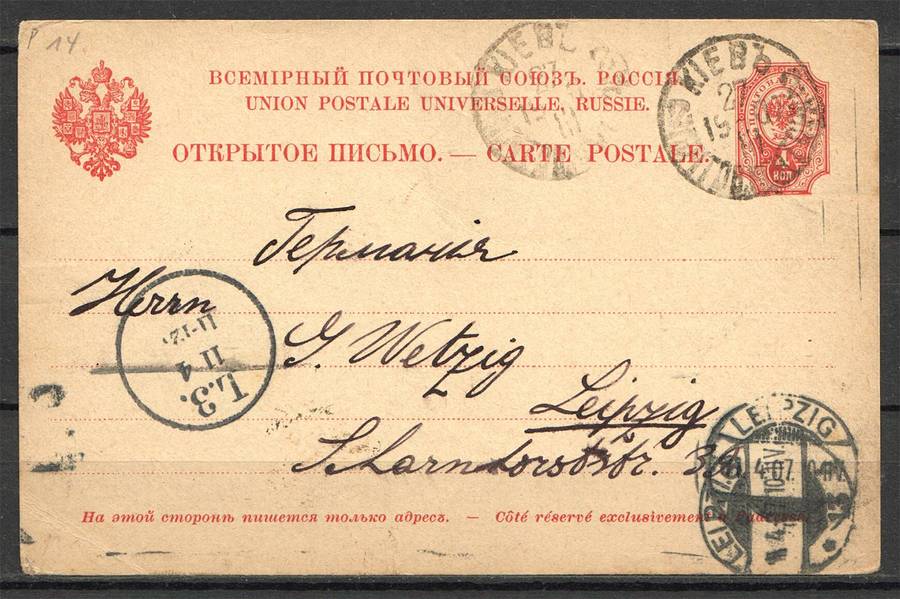 P 14.
ВСЕМІРНЫЙ ПОЧТОВЫЙ СОЮЗЪ. РОССІЯ.
UNION POSTALE UNIVERSELLE, RUSSIE.
ОТКРЫТОЕ ПИСЬМО. — CARTE POSTALE.
КІЕВЪ
КІЕВЪ
4
КОП
Германія
Herrn
G. Wetzig
Leipzig
L.3.
11 4
11-12.
LEIPZIG
4.07.
13
На этой сторонѣ пишется только адресъ. — Côté réservé exclusivement à l'adresse.